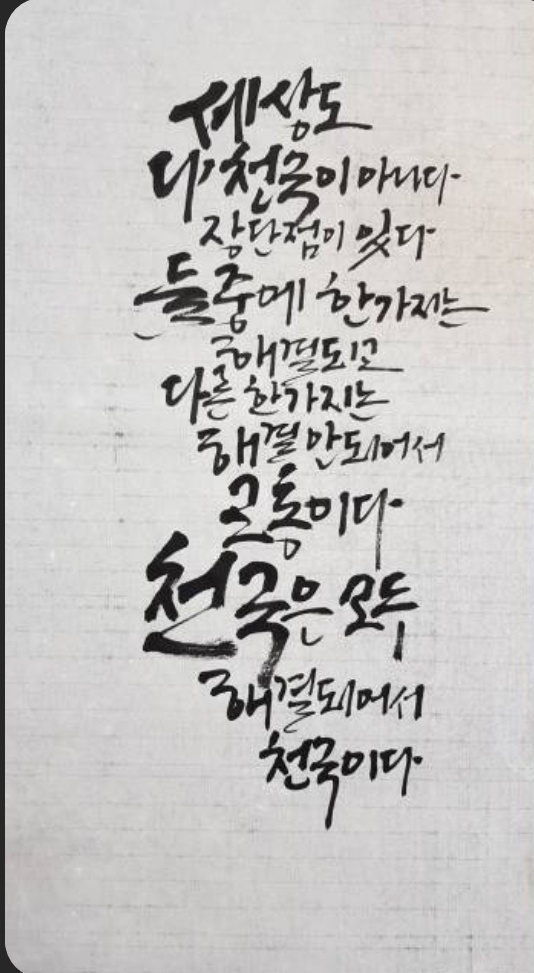 세상도
다 천국이 아니다
장단점이 있다
둘중에 한가지는
해결되고
다른 한가지는
해결 안되어서
고통이다
천국은 모두
해결되어서
천국이다